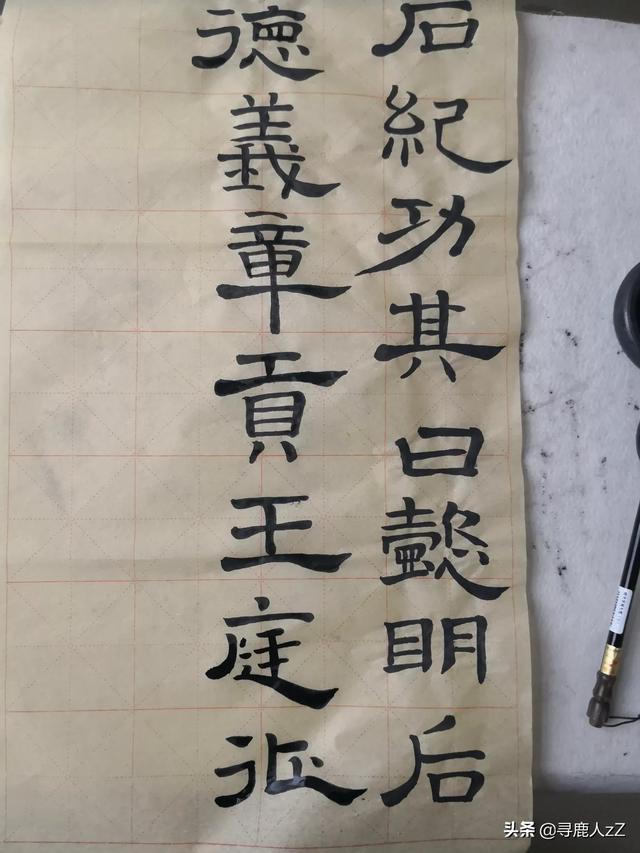 石紀功其曰懿明后
德義章貢王庭征
头条 @寻鹿人zZ